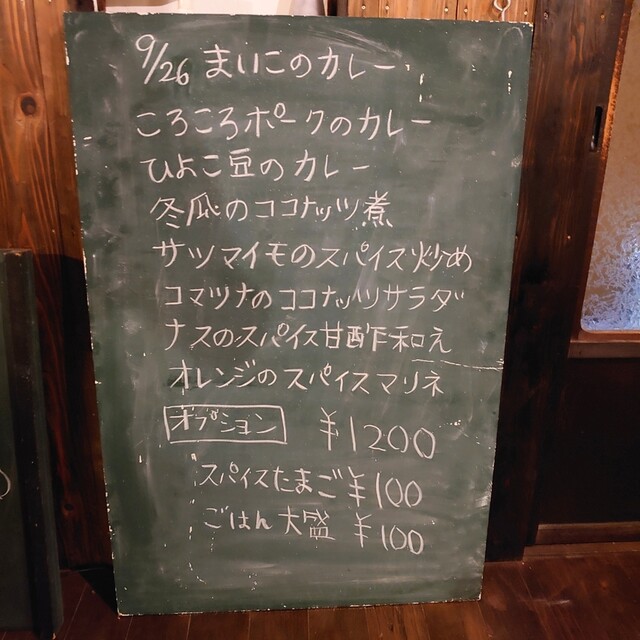 9/26 まいこのカレー
ころころポークのカレー
ひよこ豆のカレー
冬瓜のココナッツ煮
サツマイモのスパイス炒め
コマツナのココナッツサラダ
ナスのスパイス甘酢和え
オレンジのスパイスマリネ
オプション ¥1200
スパイスたまご ¥100
ごはん大盛 ¥100